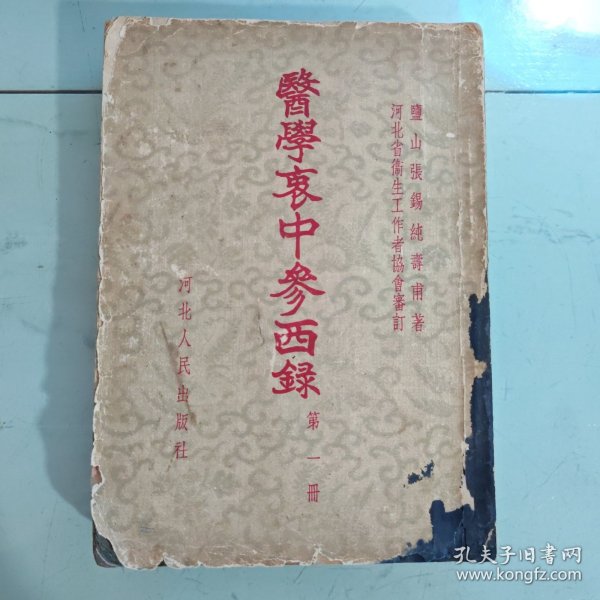 鹽山張錫純壽甫著
河北省衞生工作者協會審訂
醫學衷中參西錄
第一冊
河北人民出版社
孔夫子旧书网
www.kongfz.com